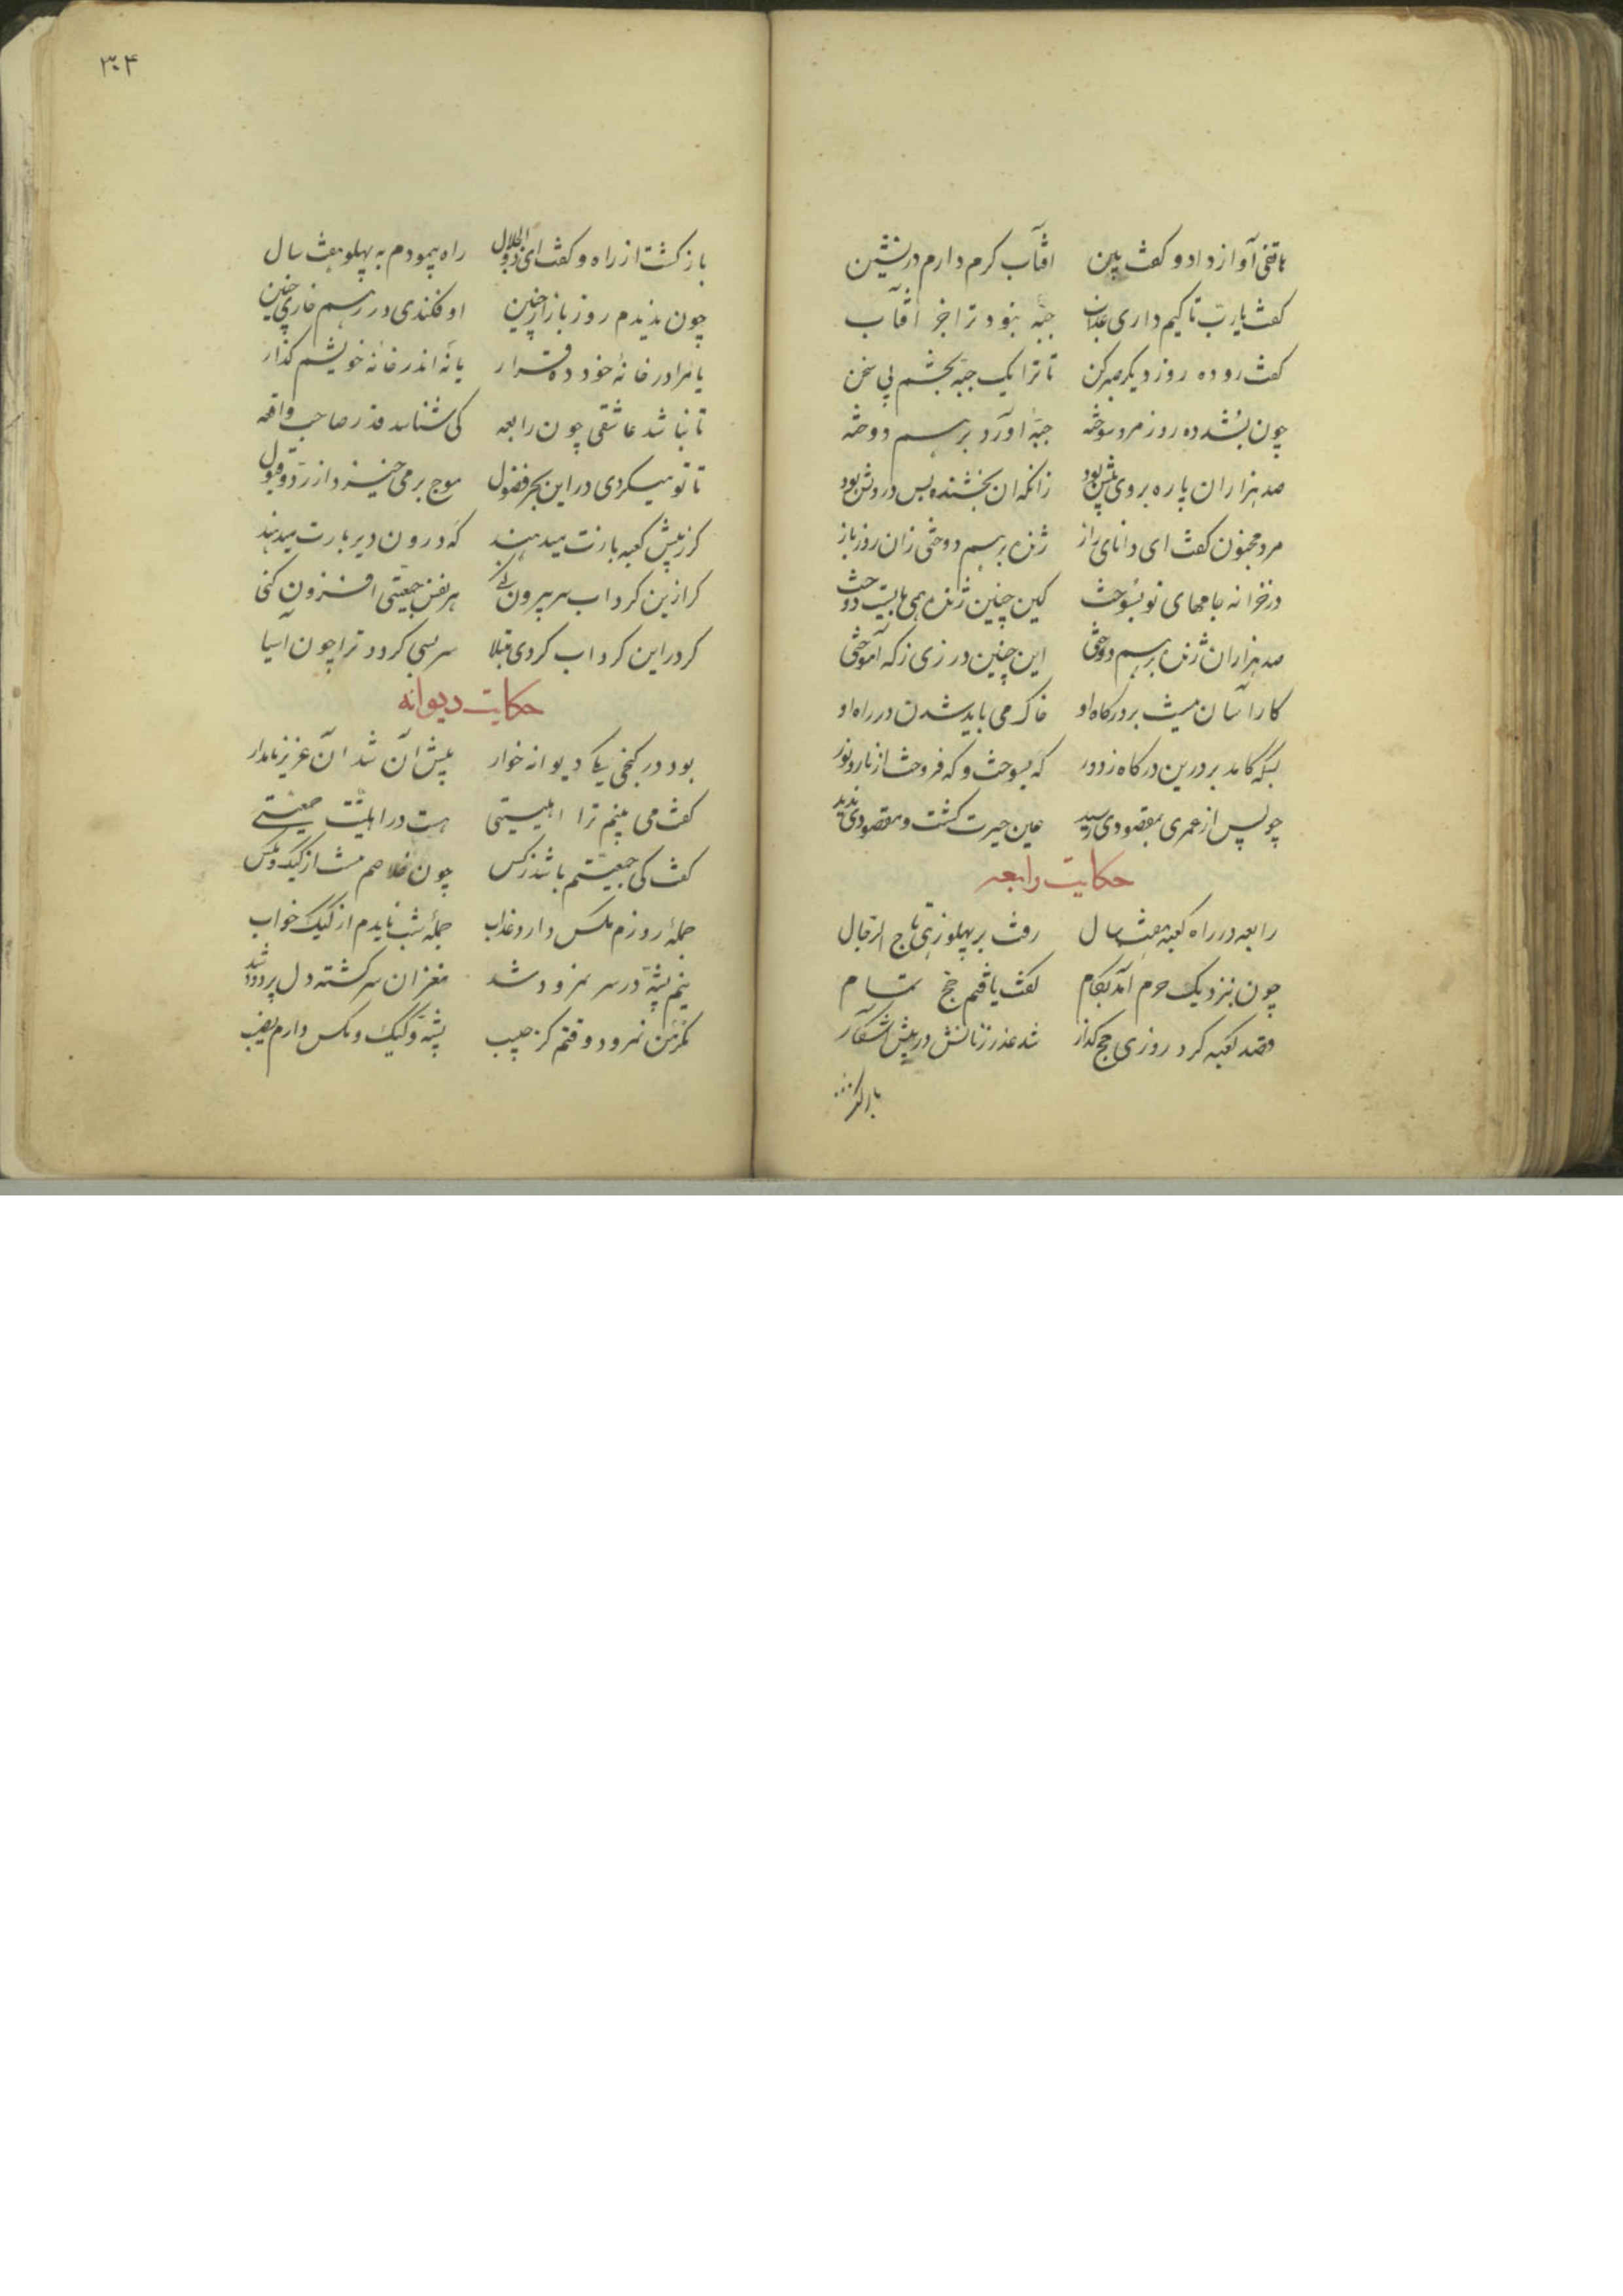 هاتفی آواز داد و کفت هین آفتاب کرم دارم در نشین
کفت یارب تا کیم داری عذاب جبّه نبود ترا جز آفتاب
کفت رو ده روز دیکر صبر کن تا ترا یک جبّه بخشم بی سخن
چون بشد ده روز مرد سوخته جبّهٔ آورد بر هم دوخته
صد هزاران پاره بر وی بیش بود زانکه آن بخشنده بس درویش بود
مرد مجنون کفت ای دانای راز ژنده بر هم دوختی زان روز باز
در خزانه جامهای تو بسوخت کین چنین ژنده همی بایست دوخت
صد هزاران ژنده بر هم دوختی این چنین درزی ز که آموختی
کار آسان نیست بر درکاه او خاک می باید شدن در راه او
بس که کامد بر درین درکاه ز دور که بسوخت و که فروخت از نار و نور
چو پس از عمری بمقصودی رسید عین حیرت کشت و مقصودی ندید
حکایت رابعه
رابعه در راه کعبه هفت سال رفت بر پهلو زهی تاج الرجال
چون بنزدیک حرم آمد بکام کفت یافتم حج تمام
قصد کعبه کرد روزی حج کذار شد عذر زنانش در پیش آشکار
باز کشت
۳۰۴
باز کشت از راه و کفت ای ذوالجلال راه پیمودم به پهلو هفت سال
چون بدیدم روز بازاری چنین اوفکندی در رهم خاری چنین
یا مرا در خانهٔ خود ده قرار یا نه اندر خانه خویشم کذار
تا نباشد عاشقی چون رابعه کی شناسد قدر صاحب واقعه
تا تو میکردی در این بحر فضول موج بر می خیزد از ردّ و قبول
کر ز پیش کعبه بازت میدهند که درون دیر بارت میدهند
کر ازین کرداب سر بیرون کنی هر نفس جمعیتی افزون کنی
کر در این کرداب کردی مبتلا سر بسی کردد ترا چون آسیا
حکایت دیوانه
بود در کنجی یکی دیوانه خوار پیش آن شد آن عزیز نامدار
کفت می بینم ترا اهلیتی هست در اهلیتت جمعیتی
کفت کی جمعیتم باشد ز کس چون خلاصم نیست از کیک و مکس
جملهٔ روزم مکس دارد عذاب جملهٔ شب نایدم از کیک خواب
نیم پشّه در سر نمرود شد مغز آن سرکشته دل پر دود شد
مکر من نمرود وقتم کز حبیب پشّه و کیک و مکس دارم نصیب